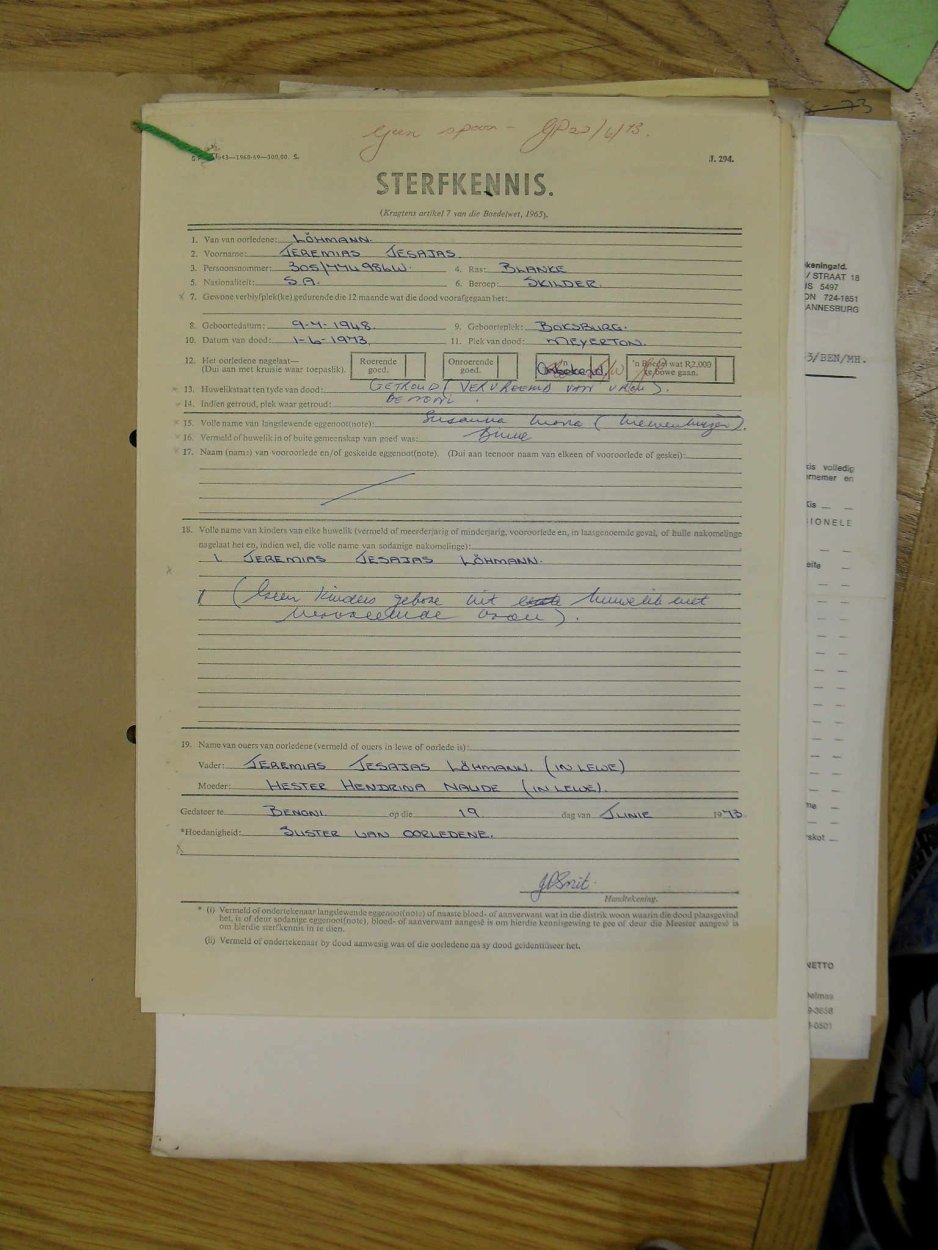 Geen spoor - GP 22/6/73.
J. 294.
STERFKENNIS.
(Kragtens artikel 7 van die Boedelwet, 1965).
1. Van van oorledene: LÖHMANN.
2. Voorname: JEREMIAS JESAJAS.
3. Persoonsnommer: 305/774984W. 4. Ras: BLANKE
5. Nasionaliteit: S.A. 6. Beroep: SKILDER.
7. Gewone verblyfplek(ke) gedurende die 12 maande wat die dood voorafgegaan het:
8. Geboortedatum: 9-7-1948. 9. Geboorteplek: BOKSBURG.
10. Datum van dood: 1-6-1973. 11. Plek van dood: MEYERTON.
12. Het oorledene nagelaat— (Dui aan met kruisie waar toepaslik). Roerende goed. Onroerende goed. Onbekend. 'n Boedel wat R2,000 te bowe gaan.
13. Huwelikstaat ten tyde van dood: GETROUD (VERVREEMD VAN VROU).
14. Indien getroud, plek waar getroud: BENONI.
15. Volle name van langslewende eggenoot(note): Susanna Maria (Niewenhuizen).
16. Vermeld of huwelik in of buite gemeenskap van goed was: Binne
17. Naam (name) van vooroorlede en/of geskeide eggenoot(note). (Dui aan teenoor naam van elkeen of vooroorlede of geskei):
18. Volle name van kinders van elke huwelik (vermeld of meerderjarig of minderjarig, vooroorlede en, in laasgenoemde geval, of hulle nakomelinge
nagelaat het en, indien wel, die volle name van sodanige nakomelinge):
1. JEREMIAS JESAJAS LÖHMANN.
(Geen kinders gebore uit huwelik met
vervreemde vrou).
19. Name van ouers van oorledene (vermeld of ouers in lewe of oorlede is):
Vader: JEREMIAS JESAJAS LÖHMANN. (IN LEWE)
Moeder: HESTER HENDRINA NAUDE (IN LEWE).
Gedateer te BENONI op die 19 dag van JUNIE 1973
*Hoedanigheid: SUSTER VAN OORLEDENE.
GPSmit.
Handtekening.
* (i) Vermeld of ondertekenaar langslewende eggenoot(note) of naaste bloed- of aanverwant wat in die distrik woon waarin die dood plaasgevind
het, is of deur sodanige eggenoot(note), bloed- of aanverwant aangesê is om hierdie kennisgewing te gee of deur die Meester aangesê is
om hierdie sterfkennis in te dien.
(ii) Vermeld of ondertekenaar by dood aanwesig was of die oorledene na sy dood geïdentifiseer het.
- 73
keningafd.
/ STRAAT 18
5497
ON 724-1851
ANNESBURG
3/BEN/MH.
is volledig
rnemer en
IONELE
NETTO
elmas
9-3658
-0501